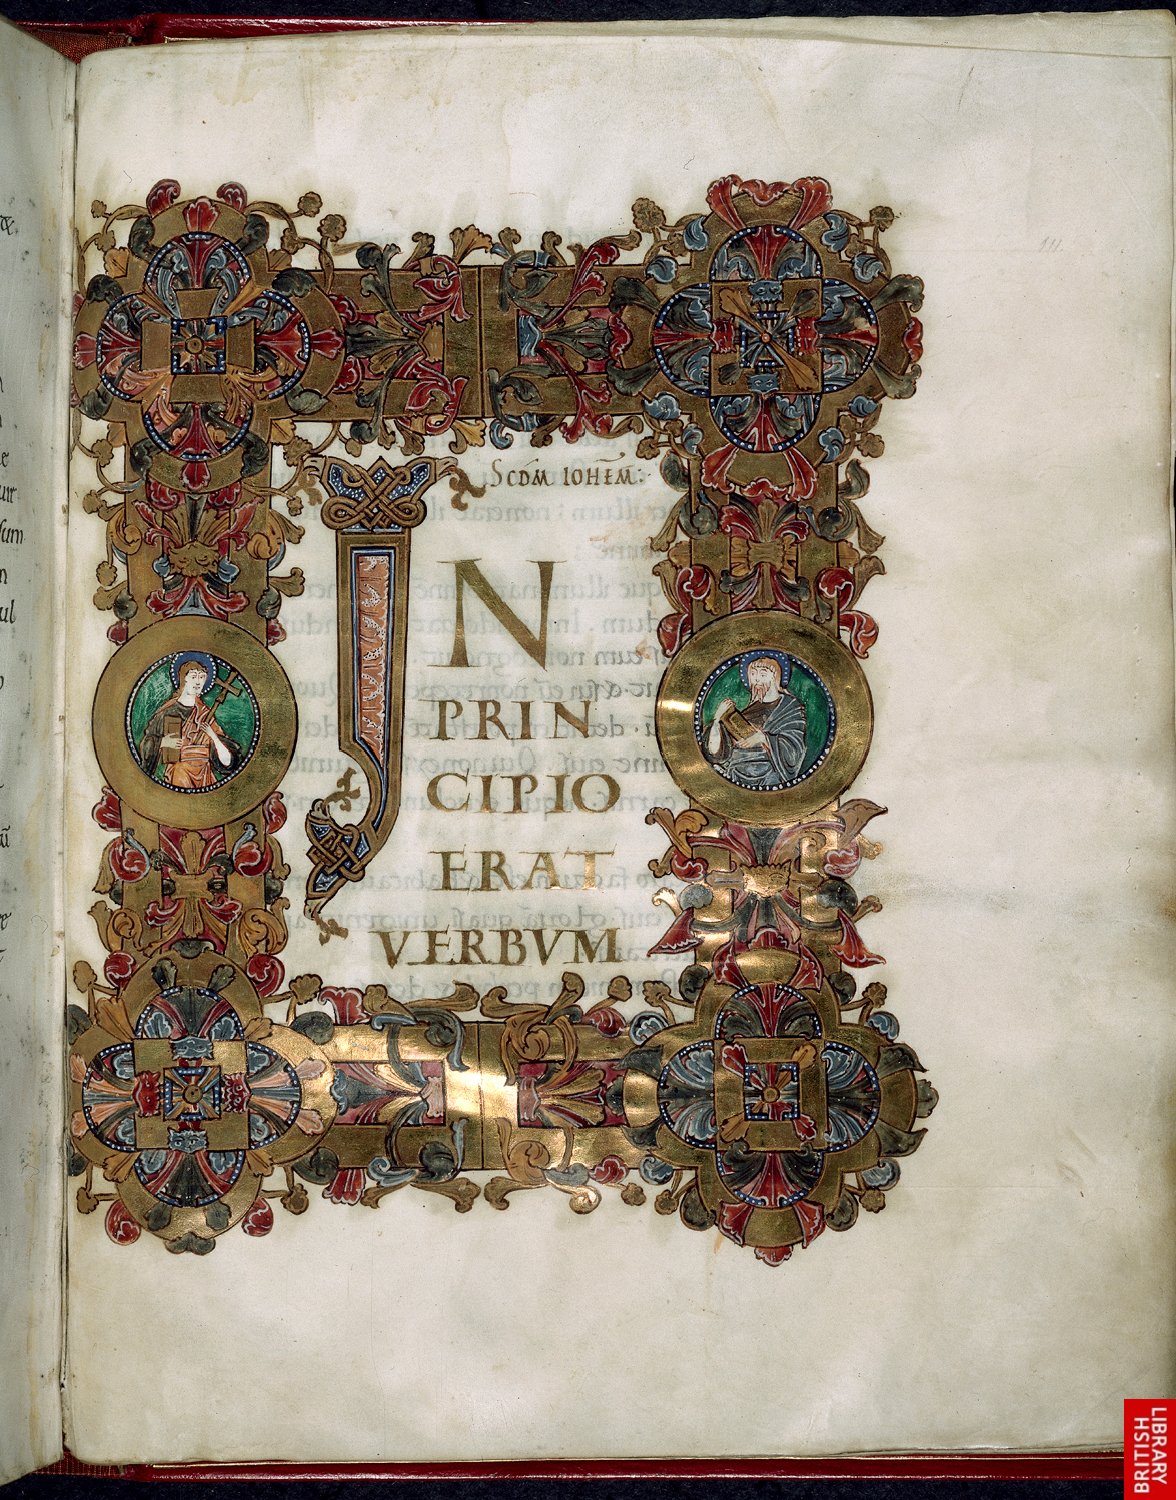 SCDM IOHEM:
IN
PRIN
CIPIO
ERAT
VERBVM
111
BRITISH
LIBRARY